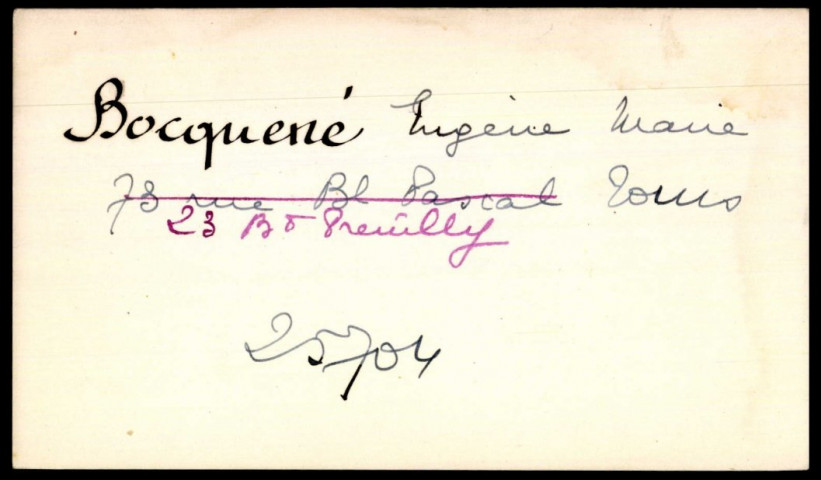 Bocquené Eugène Marie
73 rue Bl Pascal Tours
23 Bd Preuilly
25704